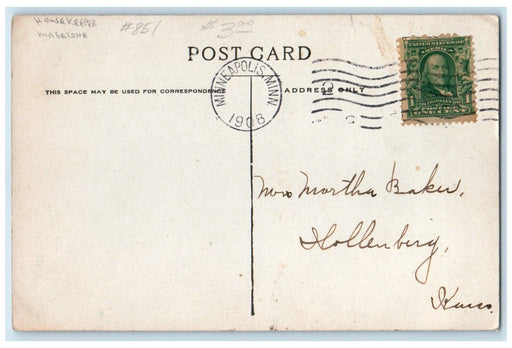 HOUSEKEEPER
MAGAZINE
#851
$3.00
POST CARD
THIS SPACE MAY BE USED FOR CORRESPONDENCE
ADDRESS ONLY
MINNEAPOLIS, MINN.
1908
UNITED STATES OF AMERICA
FRANKLIN
POSTAGE
ONE CENT
Mrs Martha Baker,
Hollenberg,
Kans